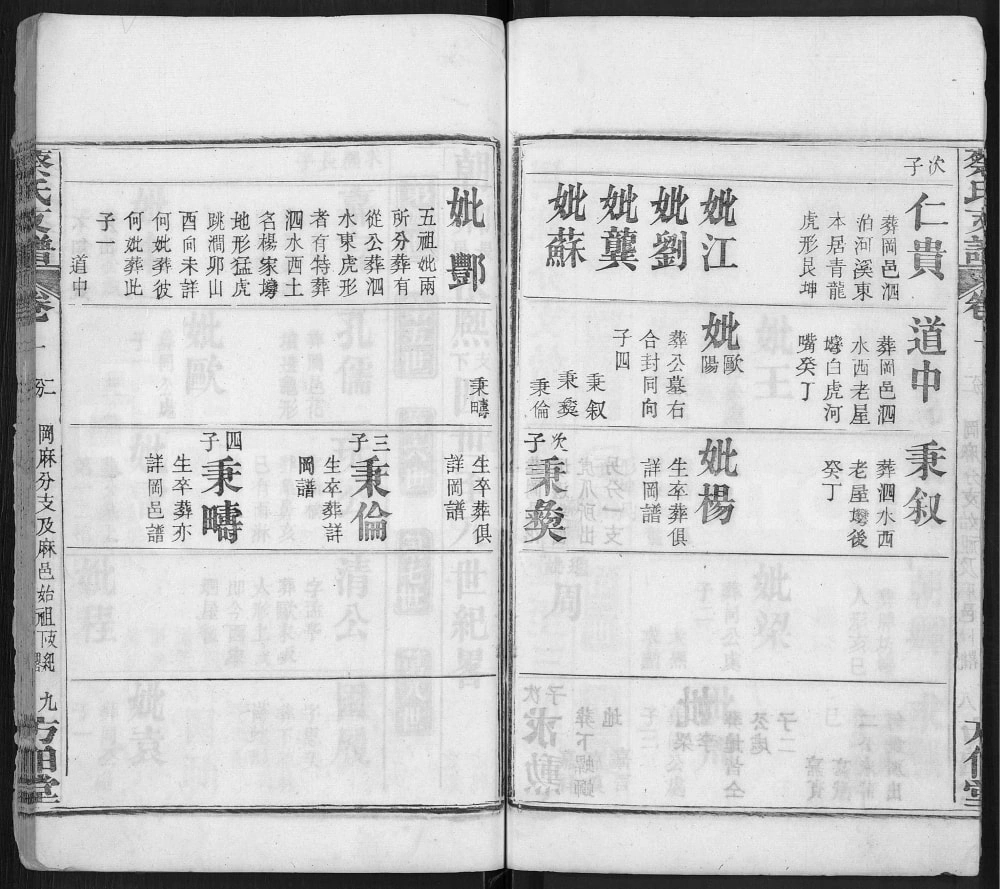 次子
仁貴
葬岡邑泗
泊河溪東
本居青龍
虎形艮坤
妣江
妣劉
妣龔
妣蘇
道中
葬岡邑泗
水西老屋
塆白虎河
嘴癸丁
妣歐陽
葬公墓右
合封同向
子四
秉叙
秉奏
秉倫
秉叙
葬泗水西
老屋塆後
癸丁
妣楊
生卒葬俱
詳岡譜
次子
秉奏
蔡氏支譜
卷一
岡麻分支及麻邑始祖
九
妣酆
五祖妣兩
所分葬有
從公葬泗
水東虎形
者有特葬
泗水西土
名楊家塆
地形猛虎
跳澗卯山
酉向未詳
何妣葬彼
何妣葬此
子一
道中
秉疇
生卒葬俱
詳岡譜
三子
秉倫
生卒葬詳
岡譜
四子
秉疇
生卒葬亦
詳岡邑譜